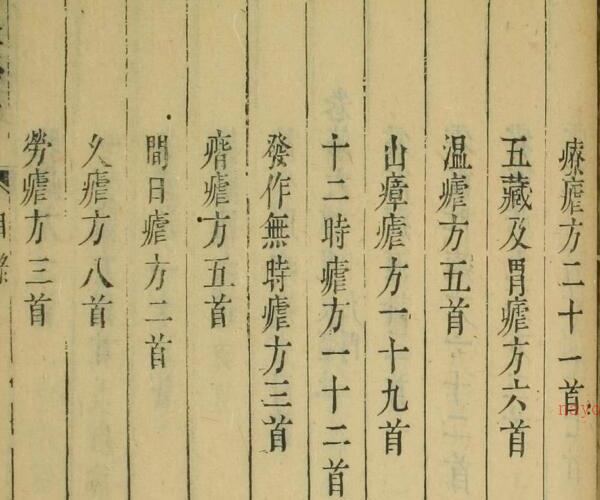 療瘧方二十一首
五藏及胃瘧方六首
温瘧方五首
山瘴瘧方一十九首
十二時瘧方一十二首
發作無時瘧方三首
痎瘧方五首
間日瘧方二首
久瘧方八首
勞瘧方三首
目錄